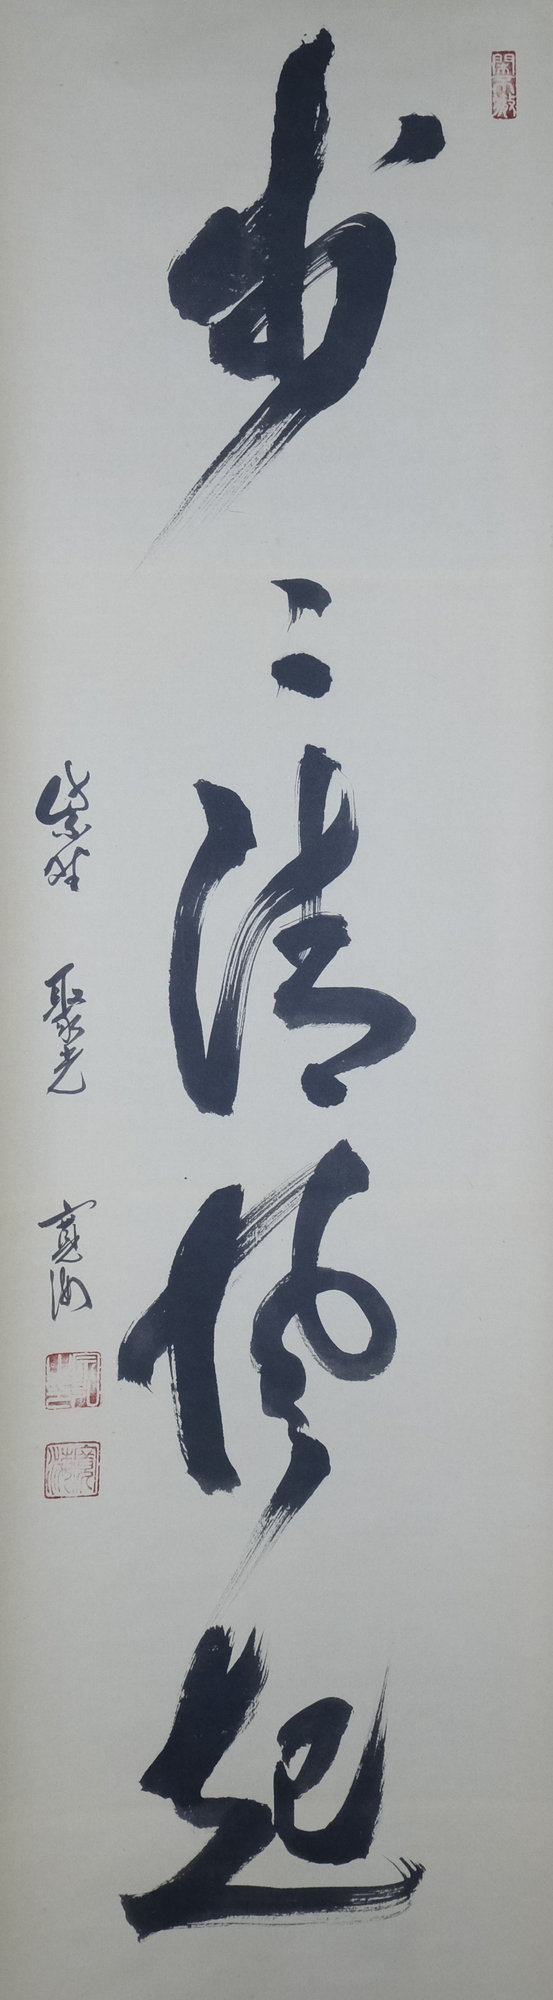 歩〻清風起
紫野 聚光 寛海